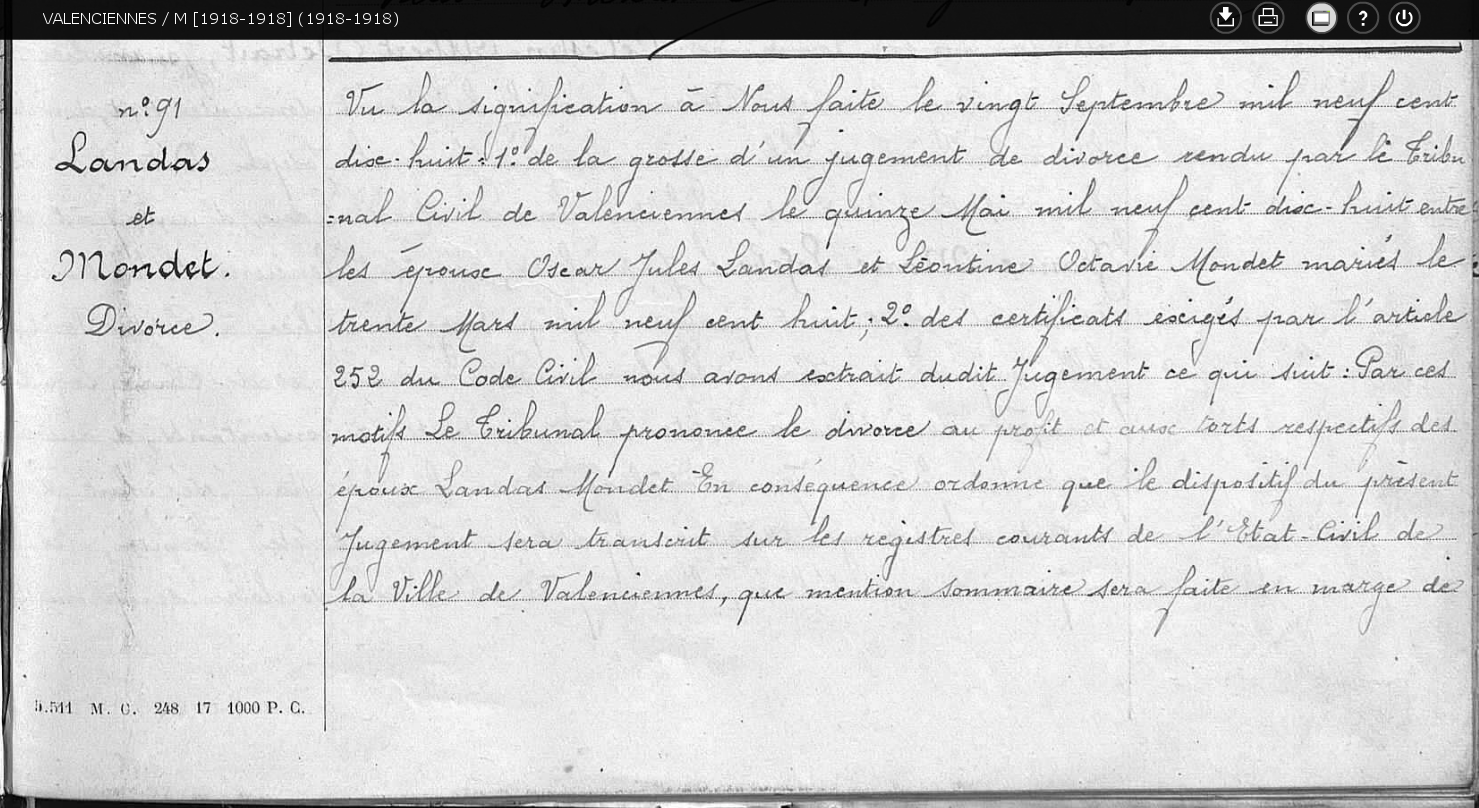 VALENCIENNES / M [1918-1918] (1918-1918)
n° 91
Landas
et
Mondet.
Divorce.
Vu la signification à Nous faite le vingt Septembre mil neuf cent
dix-huit : 1° de la grosse d'un jugement de divorce rendu par le Tribu
=nal Civil de Valenciennes le quinze Mai mil neuf cent dix-huit entre
les époux Oscar Jules Landas et Léontine Octavie Mondet mariés le
trente Mars mil neuf cent huit ; 2° des certificats exigés par l'article
252 du Code Civil nous avons extrait dudit Jugement ce qui suit : Par ces
motifs Le Tribunal prononce le divorce au profit et aux torts respectifs des
époux Landas Mondet En conséquence ordonne que le dispositif du présent
Jugement sera transcrit sur les registres courants de l'Etat-Civil de
la Ville de Valenciennes, que mention sommaire sera faite en marge de
5.511 M. C. 248 17 1000 P. C.